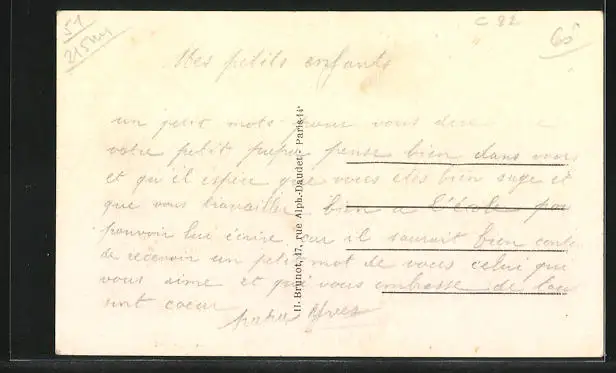 51
215 M
C 82
60
Mes petits enfants
un petit mots pour vous dire
votre petit papa pense bien dans vous
et qu'il espère que vous êtes bien sage et
que vous travailler bien a l'école pour
pouvoir lui écrire car il saurait bien conte
de recevoir un petit mot de vous celui qui
vous aime et qui vous embrasse de tou
sont coeur
papa Yves
H. Brunot, 17, rue Alph.-Daudet, Paris-14e